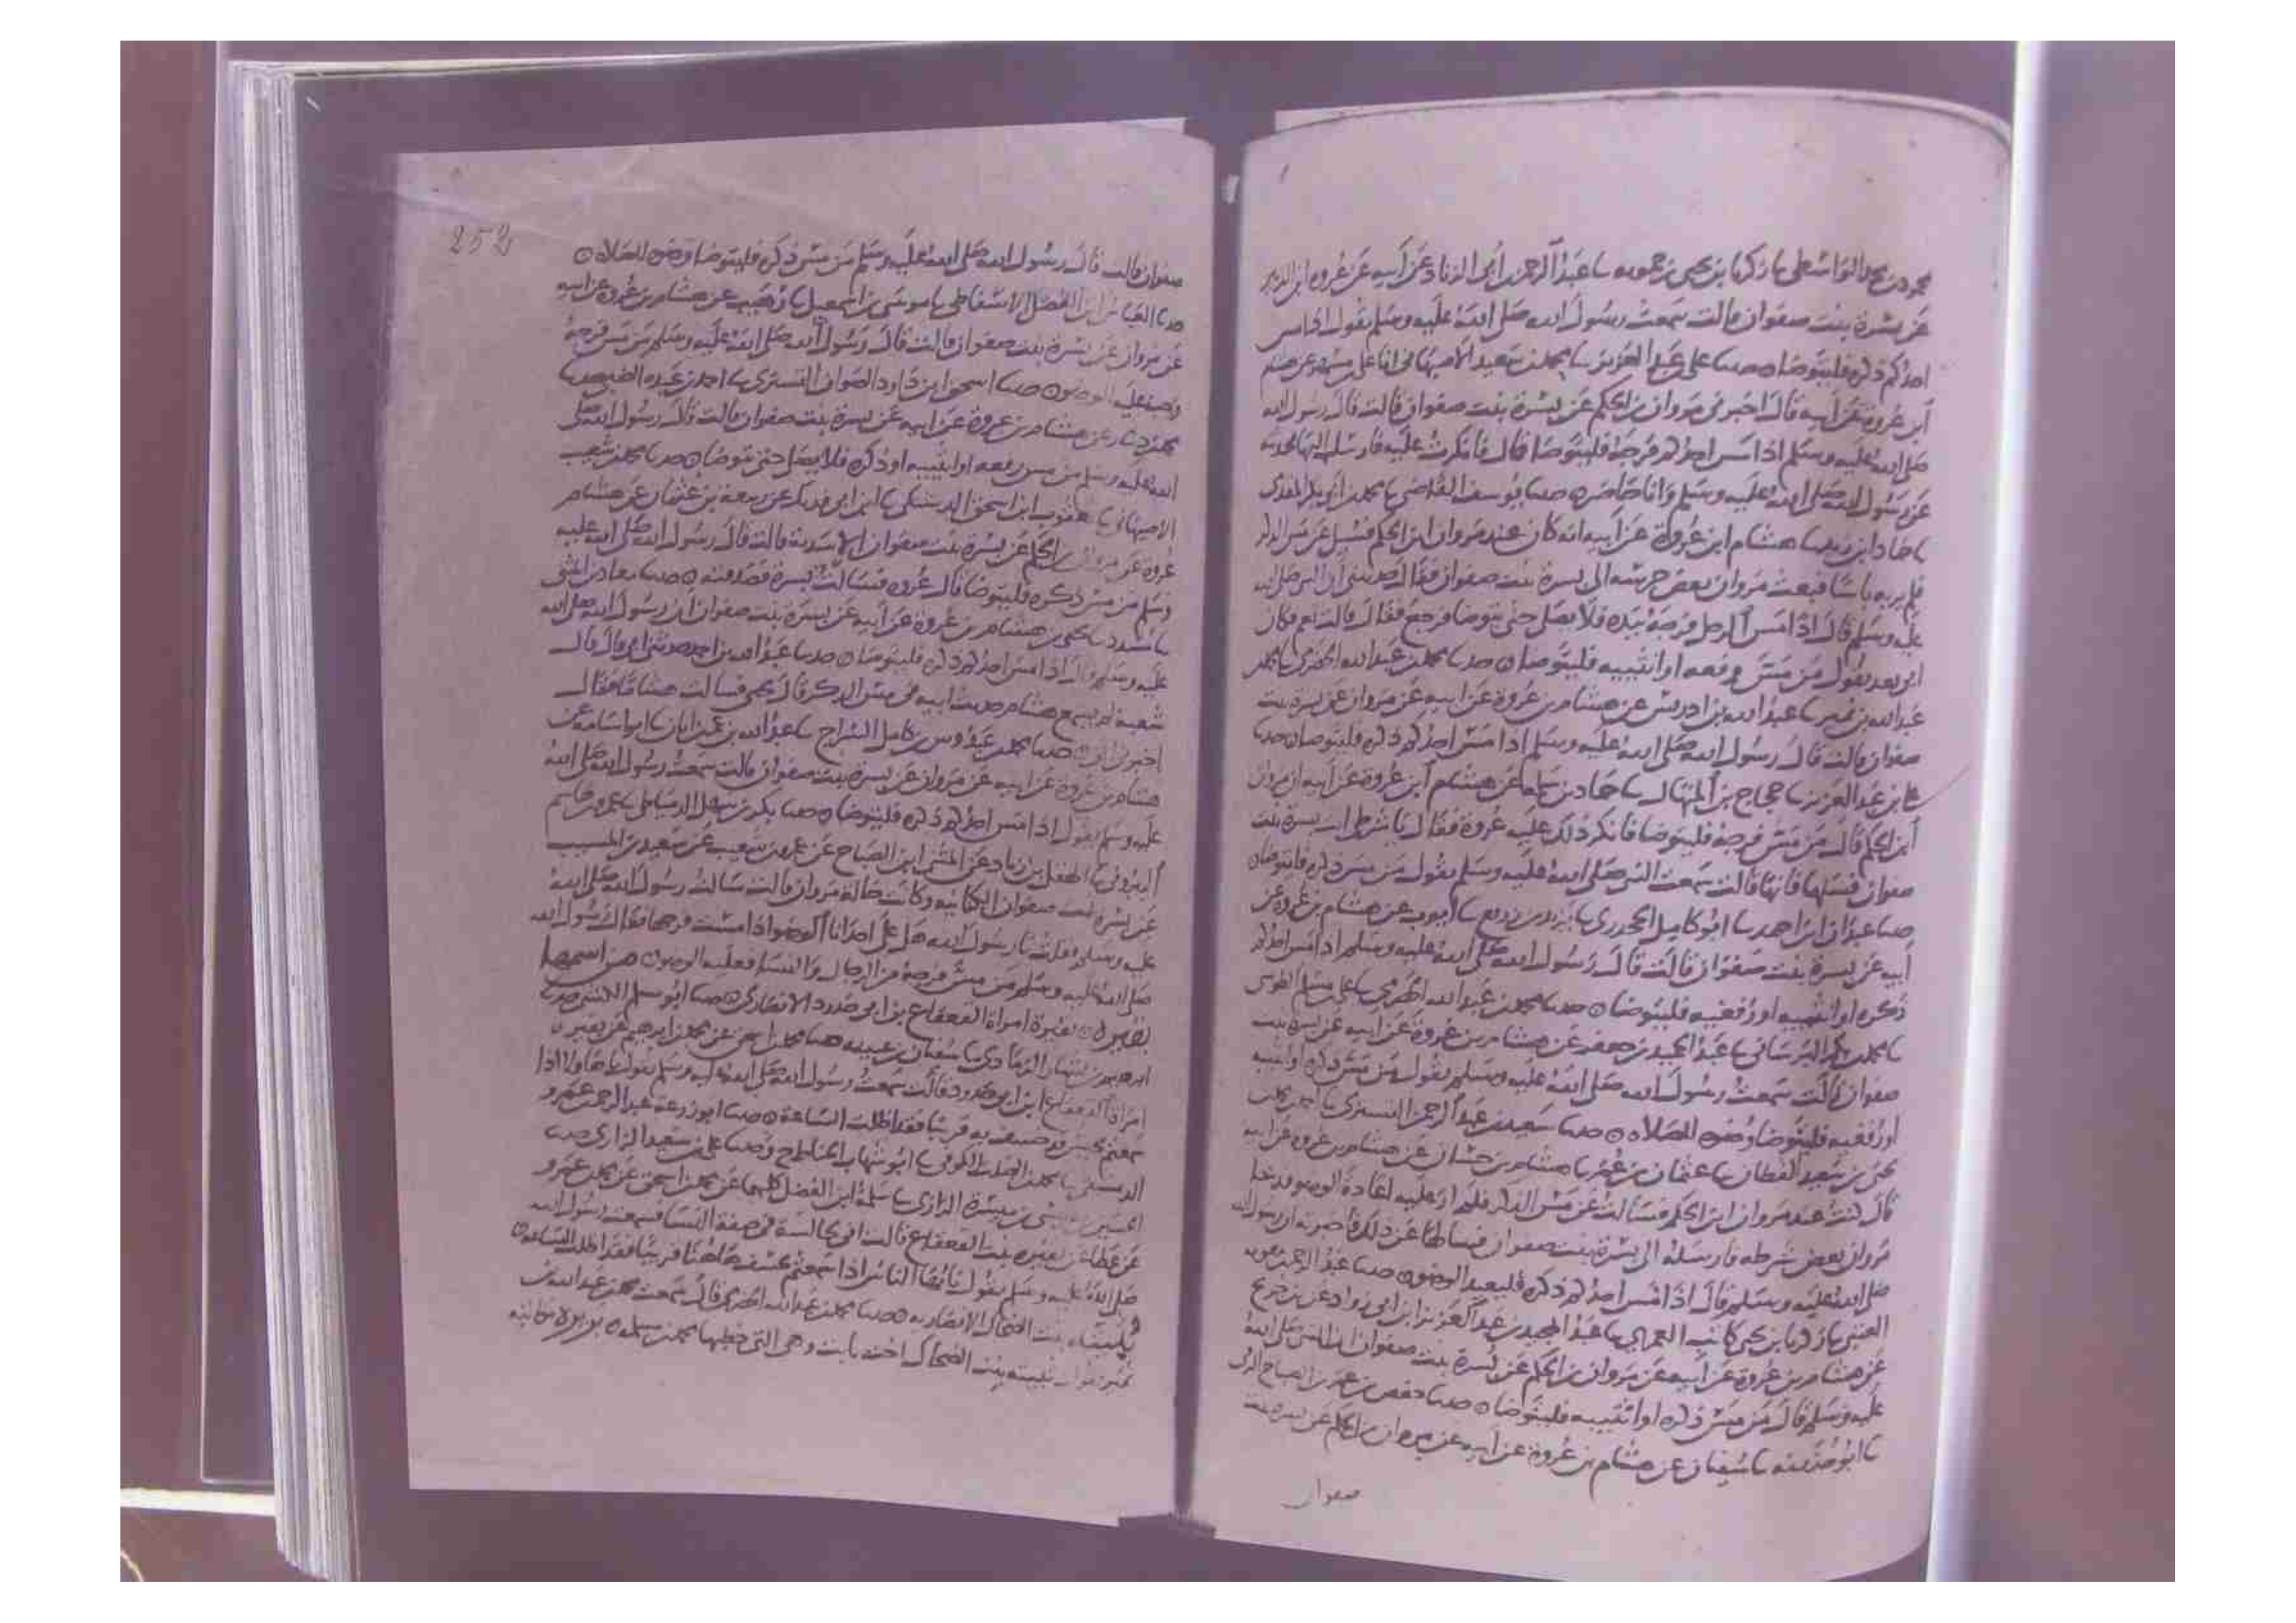 محمود بن محمد الواسطي ثا زكريا بن يحيى زحمويه ثا عبد الرحمن بن أبي الزناد عن أبيه عن عروة ابن الزبير
عن بسرة بنت صفوان قالت سمعت رسول الله صلى الله عليه وسلم يقول اذا مس
احدكم ذكره فليتوضا حدثنا علي بن عبد العزيز ثا محمد بن سعيد الاصبهاني انا علي بن مسهر عن هشام
ابن عروة عن أبيه قال اخبرني مروان بن الحكم عن بسرة بنت صفوان قالت قال رسول الله
صلى الله عليه وسلم اذا مس احدكم فرجه فليتوضا قال فانكرت عليه فارسل اليها فحدثت
عن رسول الله صلى الله عليه وسلم وانا حاضر حدثنا يوسف القاضي ثا محمد بن أبي بكر المقدمي
ثا حماد ابن زيد ثا هشام ابن عروة عن أبيه انه كان عند مروان ابن الحكم فسئل عن مس الذكر
فلم ير به باسا فبعث مروان بعض حرسه الى بسرة بنت صفوان فقال حدثيني ان النبي صلى الله
عليه وسلم قال اذا مس الرجل فرجه بيده فلا يصل حتى يتوضا فرجع فقال قالت نعم فكان
ابي بعد يقول من مس رفغه او انثييه فليتوضا حدثنا محمد بن عبد الله الحضرمي ثا محمد بن
عبد الله بن نمير ثا عبد الله بن ادريس عن هشام بن عروة عن ابيه عن مروان عن بسرة بنت
صفوان قالت قال رسول الله صلى الله عليه وسلم إذا مس احدكم ذكره فليتوضا حدثنا
علي بن عبد العزيز ثا حجاج بن المنهال ثا حماد بن سلمة عن هشام ابن عروة عن أبيه ان مروان
ابن الحكم قال من مس فرجه فليتوضا فانكر ذلك عليه عروة فقال يا شرطي ايت بسرة بنت
صفوان فسلها فاتاها فقالت سمعت النبي صلى الله عليه وسلم يقول من مس ذكره فليتوضا
حدثنا عبدان ابن احمد ثا ابو كامل الجحدري ثا يزيد بن زريع ثا أيوب عن هشام بن عروة عن
أبيه عن بسرة بنت صفوان قالت قال رسول الله صلى الله عليه وسلم إذا مس احدكم
ذكره او انثييه او رفغيه فليتوضا حدثنا محمد بن عبد الله الحضرمي ثا علي بن مسلم الطوسي
ثا محمد بن بكر البرساني ثا عبد الحميد بن جعفر عن هشام بن عروة عن ابيه عن بسرة بنت
صفوان قالت سمعت رسول الله صلى الله عليه وسلم يقول من مس ذكره او انثييه
او رفغيه فليتوضا وضوه للصلاة حدثنا سعيد بن عبد الرحمن التستري ثا
يحيى بن سعيد القطان ثا عثمان بن عمر ثا هشام بن حسان عن هشام بن عروة عن ابيه
قال كنت عند مروان ابن الحكم فسالت عن مس الذكر فلم ار عليه اعادة الوضو فدخل
مروان بعض شرطه فارسله الى بسرة بنت صفوان فسالها عن ذلك فاخبرته ان رسول الله
صلى الله عليه وسلم قال اذا مس احدكم ذكره فليعد الوضو حدثنا عبد الرحمن بن معوية
العتبي ثا زكريا بن يحيى كاتب العمري ثا عبد المجيد بن عبد العزيز ابن ابي رواد عن بن جريج
عن هشام بن عروة عن أبيه عن مروان بن الحكم عن بسرة بنت صفوان ان النبي صلى الله
عليه وسلم قال من مس ذكره او انثييه فليتوضا حدثنا حفص بن عمر بن الصباح الرقي
ثا ابو حذيفة ثا سفيان عن هشام بن عروة عن ابيه عن مروان بن الحكم عن بسرة بنت
صفوان
252
صفوان قالت قال رسول الله صلى الله عليه وسلم من مس ذكره فليتوضا وضوه للصلاة
حدثنا العباس ابن الفضل الاسفاطي ثا موسى بن اسمعيل ثا وهيب عن هشام بن عروة عن ابيه
عن مروان عن بسرة بنت صفوان قالت قال رسول الله صلى الله عليه وسلم من مس فرجه
الوضو حدثنا اسحق ابن داود الصواف التستري ثا احمد بن عبده الضبي حدثنا
محمد بن دينار عن هشام بن عروة عن ابيه عن بسرة بنت صفوان قالت قال رسول الله صلى
الله عليه وسلم من مس رفغه او انثييه او ذكره فلا يصل حتى يتوضا حدثنا محمد بن شعيب
الاصبهاني ثا يعقوب ابن اسحق الدشتكي ثا ابن ابي فديك عن ربيعة بن عثمان عن هشام
عروة عن مروان بن الحكم عن بسرة بنت صفوان الاسدية قالت قال رسول الله صلى الله عليه
وسلم من مس ذكره فليتوضا قال عروة فسالت بسرة فصدقته حدثنا معاذ بن المثنى
ثا مسدد ثا يحيى عن هشام بن عروة عن أبيه عن بسرة بنت صفوان ان رسول الله صلى الله
عليه وسلم قال اذا مس احدكم ذكره فليتوضا حدثنا عبد الله بن احمد حدثني ابي قال قال
شعبة لم يسمع هشام حديث ابيه في مس الذكر قال يحيى فسالت هشاما فقال
اخبرني ابي حدثنا محمد بن عبدوس بن كامل السراج ثا عبد الله بن عمر بن ابان ثا ابو اسامة عن
هشام بن عروة عن ابيه عن مروان عن بسرة بنت صفوان قالت سمعت رسول الله صلى الله
عليه وسلم يقول اذا مس احدكم ذكره فليتوضا حدثنا بكر بن سهل الدمياطي ثا عمرو بن هاشم
البيروتي ثا الهقل بن زياد عن المثنى ابن الصباح عن عمرو بن شعيب عن سعيد بن المسيب
عن بسرة بنت صفوان الكنانية وكانت خالة مروان قالت سالت رسول الله صلى الله
عليه وسلم قلت يا رسول الله هل على احدانا الوضو اذا مست فرجها فقال رسول الله
صلى الله عليه وسلم من مس فرجه من الرجال والنسا فعليه الوضو من اسمها
بقيرة بقيرة امراة القعقاع بن ابي حدرد الانصاري حدثنا ابو مسلم الكشي حدثنا
ابرهيم بن بشار الرمادي ثا سفيان بن عيينة حدثنا محمد بن اسحق عن محمد بن ابرهيم عن بقيرة
امراة القعقاع ابن ابي حدرد قالت سمعت رسول الله صلى الله عليه وسلم يقول يا هاولا اذا
سمعتم بجيش قد خسف به قريبا فقد اظلت الساعة حدثنا ابو زرعة عبد الرحمن بن عمرو
الدمشقي ثا محمد بن الصلت الكوفي ثا ابو شهاب الحناط ح وحدثنا علي بن سعيد الرازي حدثنا
الحسين بن عيسى بن ميسرة الرازي ثا سلمة ابن الفضل كلهما عن محمد بن اسحق عن محمد بن عمرو
عن عطا عن بقيرة بنت القعقاع قالت اني لجالسة في صفة النسا فسمعت رسول الله
صلى الله عليه وسلم يقول يا أيها الناس اذا سمعتم بخسف هاهنا قريبا فقد اظلت الساعة
بنت الضحاك الانصارية حدثنا محمد بن عبد الله الحضرمي قال سمعت محمد بن عبد الله بن
نمير يقول ثبيته بنت الضحاك اخت ثابت وهي التي خطبها محمد بن مسلمة